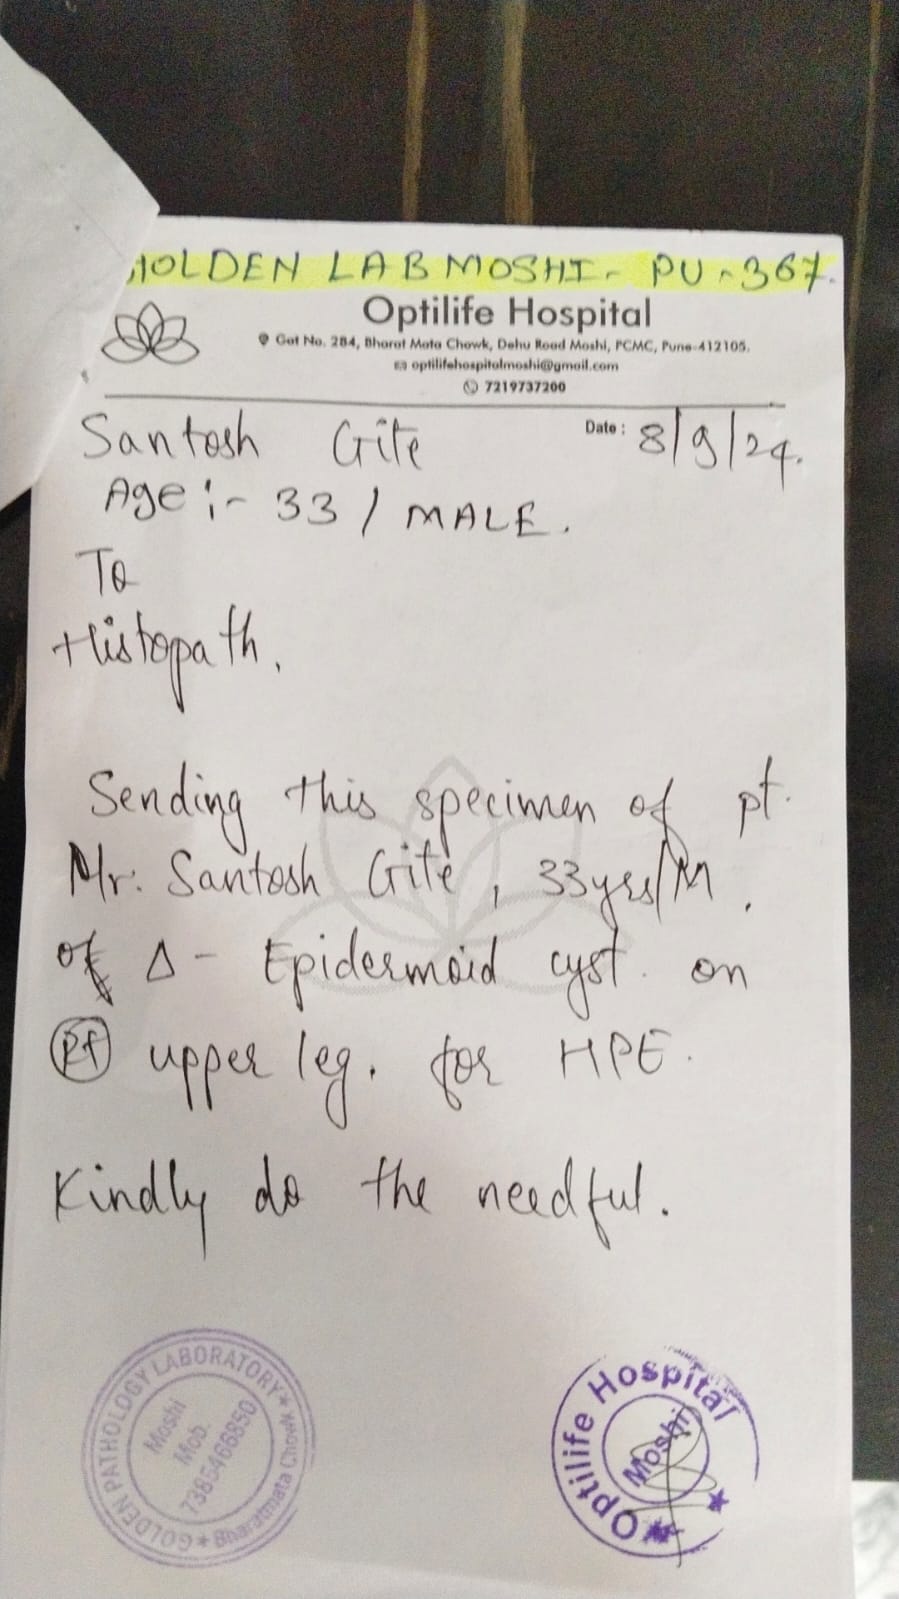 GOLDEN LAB MOSHI - PU - 367.
Optilife Hospital
Gat No. 284, Bharat Mata Chowk, Dehu Road Moshi, PCMC, Pune-412105.
optilifehospitalmoshi@gmail.com
7219737200
Santosh Gite
Date : 8/9/24.
Age :- 33 / MALE.
To
Histopath,
Sending this specimen of pt.
Mr. Santosh Gite, 33yrs/M.
of Δ - Epidermoid cyst. on
Rt upper leg. for HPE.
Kindly do the needful.
GOLDEN PATHOLOGY LABORATORY ★ Bharatmata Chowk ★
Moshi
Mob.
7385466850
Optilife Hospital
Moshi